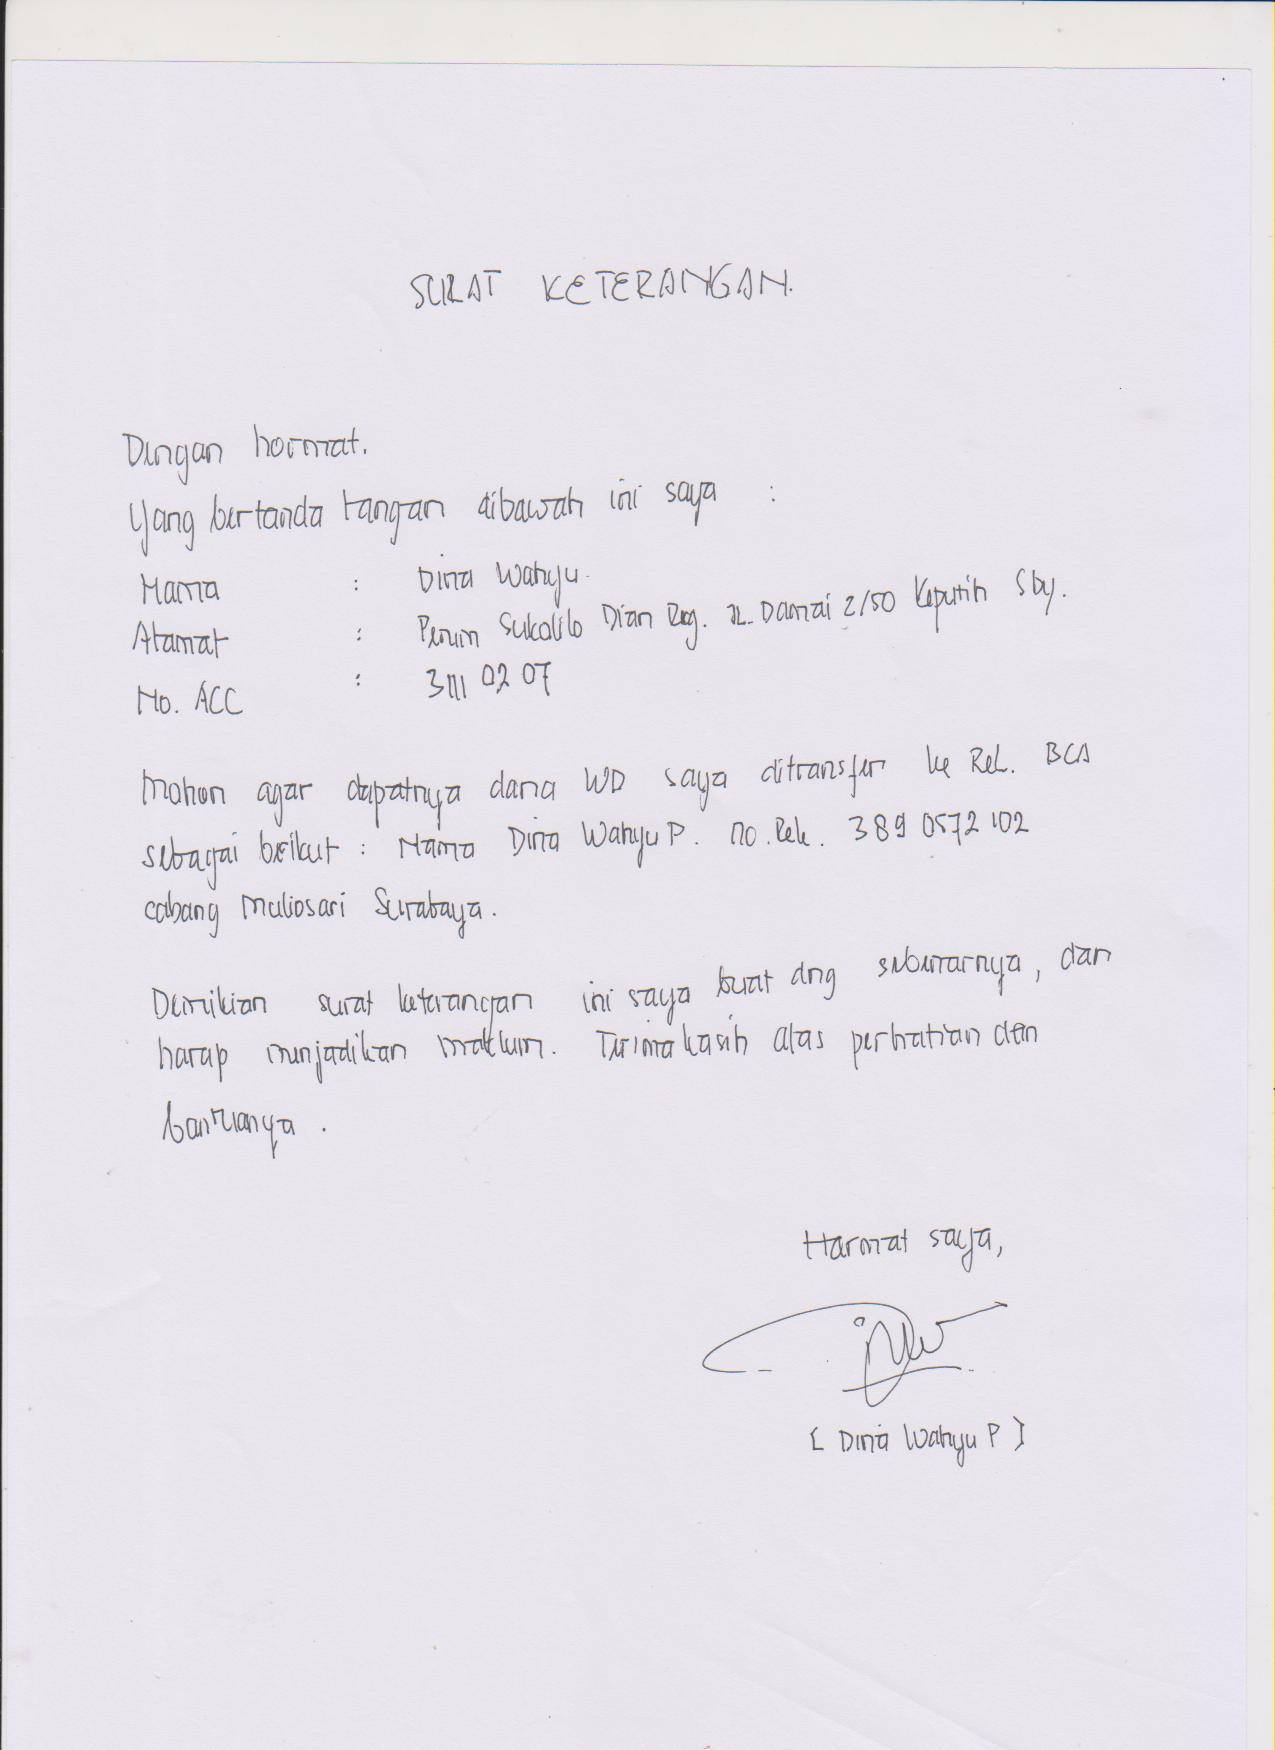 SURAT KETERANGAN.
Dengan hormat.
Yang bertanda tangan dibawah ini saya :
Nama : Dina Wahyu.
Alamat : Perum Sukolilo Dian Reg. JL. Damai 2/50 Keputih Sby.
No. ACC : 3111 02 07
Mohon agar dapatnya dana WD saya ditransfer ke Rek. BCA
sebagai berikut : Nama Dina Wahyu P. no. Rek. 389 0572 102
cabang Muliosari Surabaya.
Demikian surat keterangan ini saya buat dng sebenarnya, dan
harap menjadikan maklum. Terima kasih atas perhatian dan
bantuanya.
Hormat saya,
[ Dina Wahyu P ]